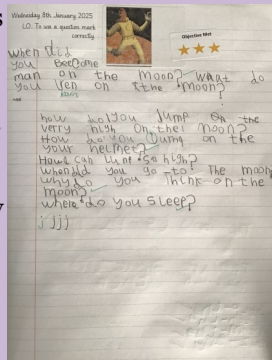 Wednesday 8th January 2025
LO: To use a question mark
correctly.
Objective Met
when did
you become
man on the moon? What do
you on the moon?
how do you Jump on the
verry high on the moon?
How do you on the
your helmet?
How can so high?
when did you go to the moon
why do you think on the
moon?
where do you sleep?
j jjj